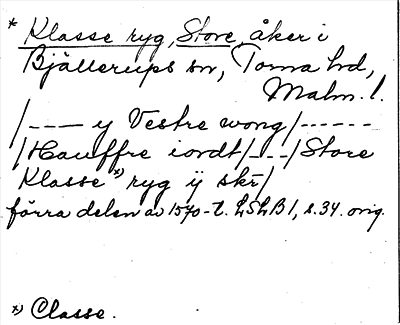 * Klasse ryg, Store, åker i
Bjällerups sn, Torna hd,
Malm. l.
/---- y Vestre wong/------
/Hauffre iordt/---/Store
Klasse *) ryg ij skr/
förra delen av 1570-t. LSLB 1, s. 34. orig.
*) Classe.